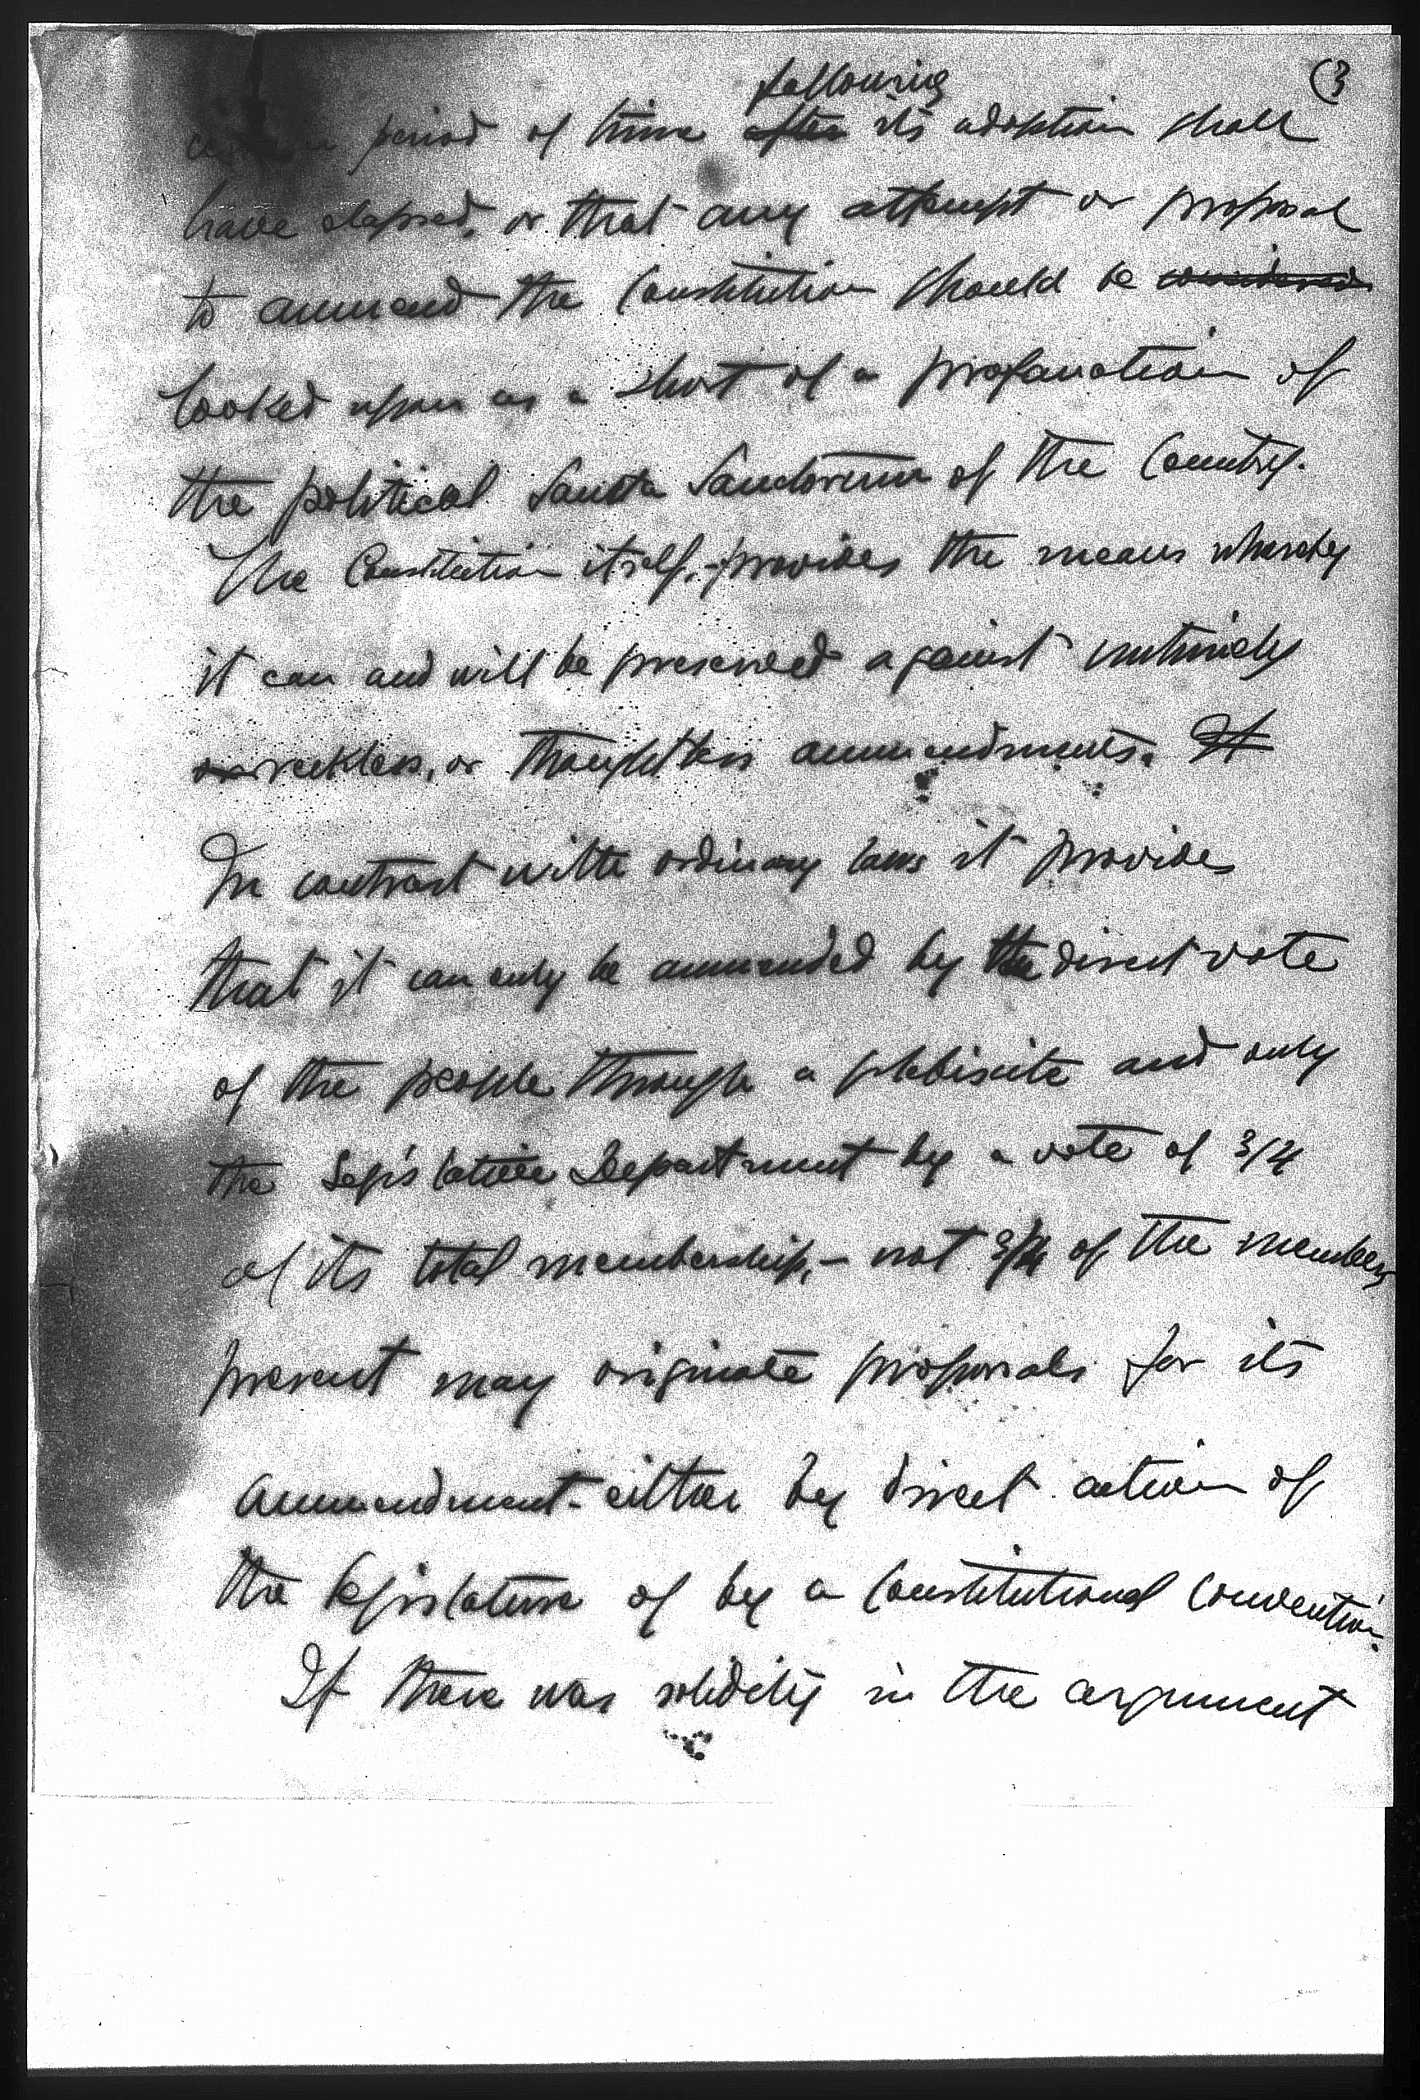 (3
following
certain period of time after its adoption shall
have elapsed, or that any attempt or proposal
to ammend the Constitution should be considered
looked upon as a short of a profanation of
the political Sancta Sanctorum of the Country.
The Constitution itself provides the means whereby
it can and will be preserved against untimely
or reckless, or thoughtless ammendments. It
In contrast with ordinary laws it provides
that it can only be ammended by the direct vote
of the people through a plebiscite and only
the Legislative Department by a vote of 3/4
of its total membership, - not 3/4 of the members
present may originate proposals for its
ammendment either by direct action of
the legislature of by a Constitutional Convention.
If there was solidity in the argument